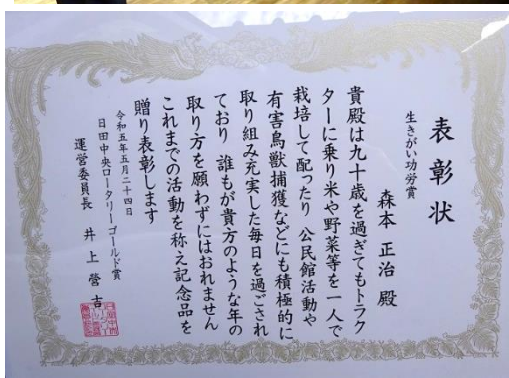 表彰状
生きがい功労賞
森本正治殿
貴殿は九十歳を過ぎてもトラク
ターに乗り米や野菜等を一人で
栽培して配ったり 公民館活動や
有害鳥獣捕獲などにも積極的に
取り組み充実した毎日を過ごされ
ており 誰もが貴方のような年の
取り方を願わずにはおれません
これまでの活動を称え記念品を
贈り表彰します
令和五年五月二十四日
日田中央ロータリーゴールド賞
運営委員長 井上營吉